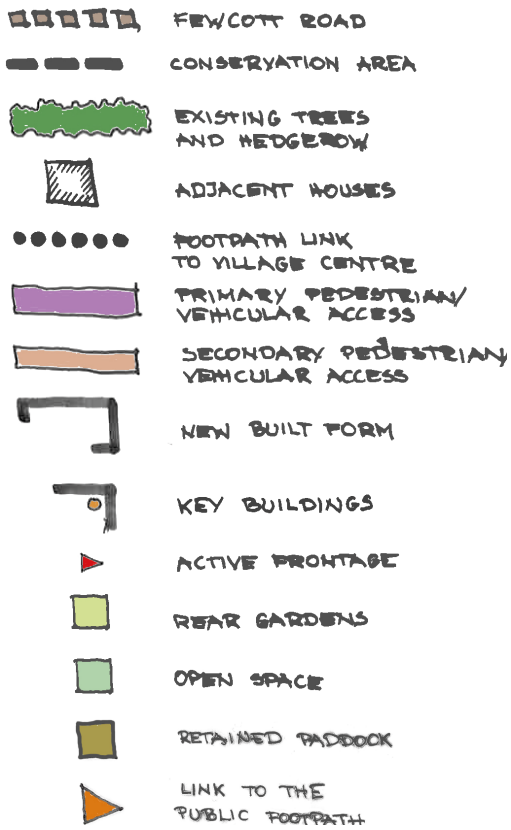 FEWCOTT ROAD
CONSERVATION AREA
EXISTING TREES
AND HEDGEROW
ADJACENT HOUSES
FOOTPATH LINK
TO VILLAGE CENTRE
PRIMARY PEDESTRIAN/
VEHICULAR ACCESS
SECONDARY PEDESTRIAN/
VEHICULAR ACCESS
NEW BUILT FORM
KEY BUILDINGS
ACTIVE FRONTAGE
REAR GARDENS
OPEN SPACE
RETAINED PADDOCK
LINK TO THE
PUBLIC FOOTPATH